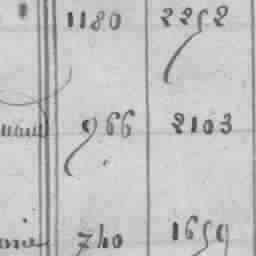 1180 2252
966 2103
740 1659